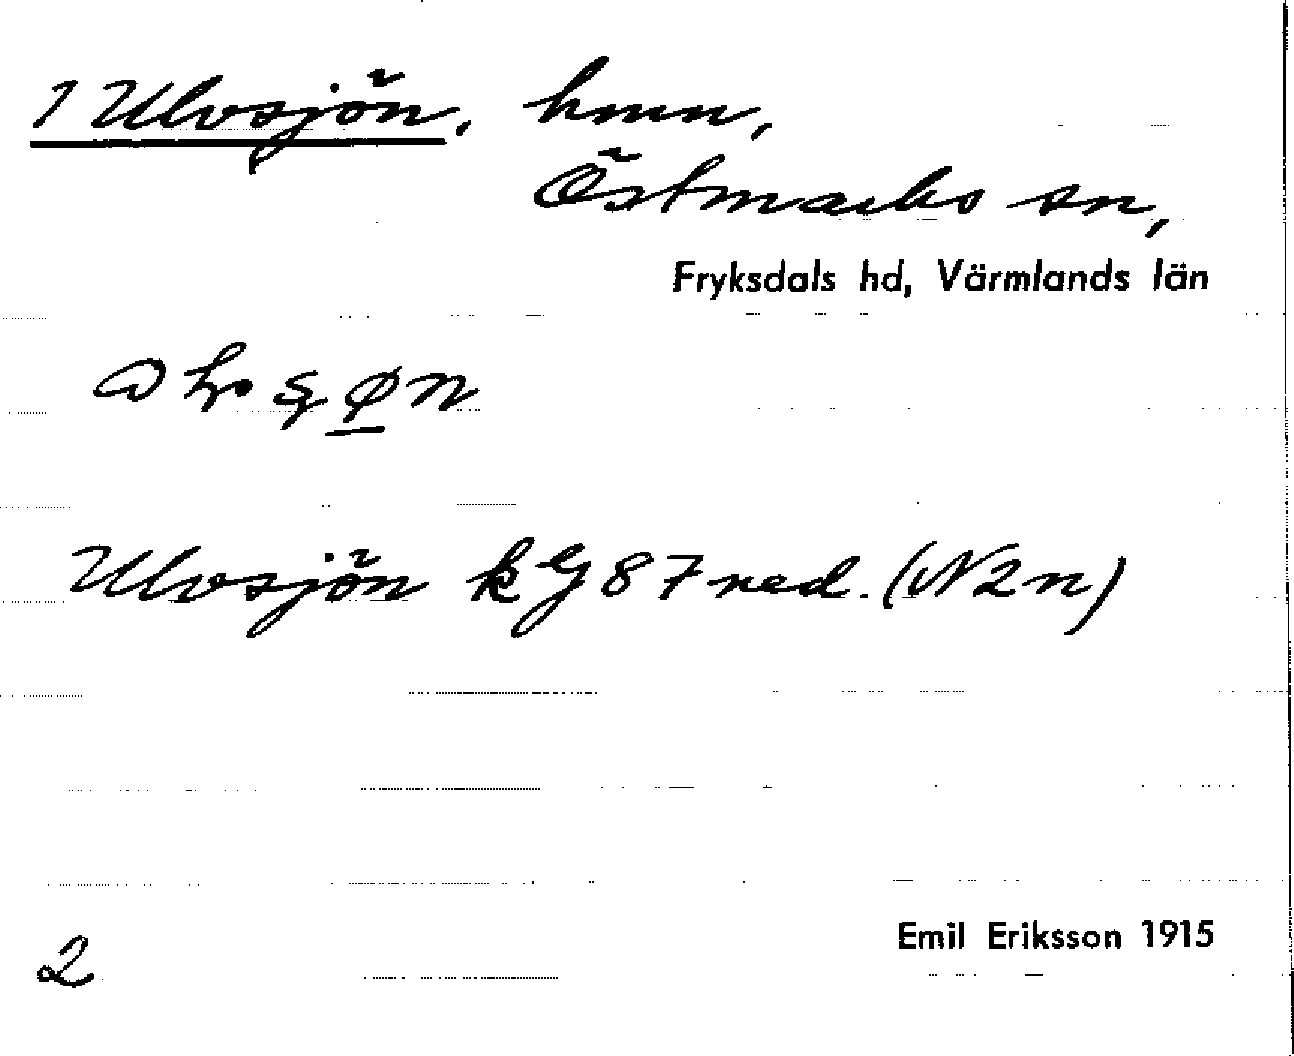 1 Ulvsjön, hmn,
Östmarks sn,
Fryksdals hd, Värmlands län
Ulvsjön k G 87 ned. (N2n)
Emil Eriksson 1915
2